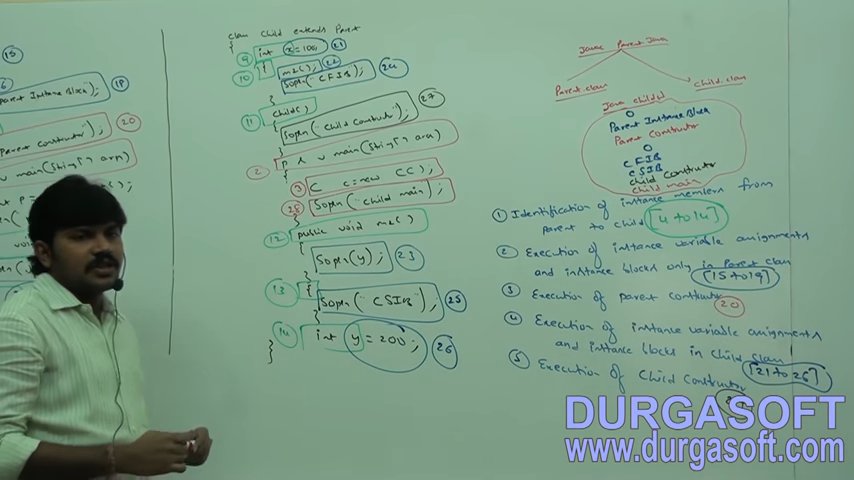 15
Parent Instance Block"); 18
Parent constructor"); 20
main(String[] args)
class Child extends Parent
{
9 int x=100; 21
10 {
m2(); 22
Sopln("CFIB"); 24
}
11 Child()
{
Sopln("Child Constructor"); 27
}
2 p s v main(String[] args)
{
3 C c=new C();
28 Sopln("Child main");
}
12 public void m2()
{
Sopln(y); 23
}
13 {
Sopln("CSIB"); 25
}
14 int y=200; 26
}
Javac Parent.java
Parent.class Child.class
Java child
0
Parent Instance Block
Parent Constructor
0
CFIB
CSIB
child constructor
child main
1 Identification of instance members from
parent to child [4 to 14]
2 Execution of instance variable assignments
and instance blocks only in Parent class
[15 to 19]
3 Execution of parent constructor
20
4 Execution of instance variable assignments
and instance blocks in child class
[21 to 26]
5 Execution of child constructor
DURGASOFT
www.durgasoft.com